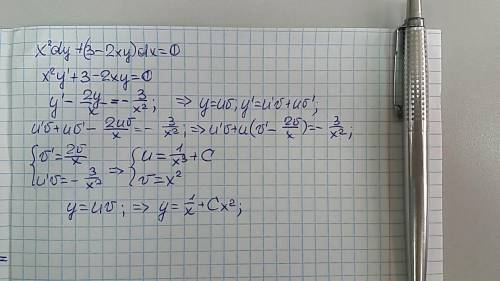 x²dy+(3-2xy)dx=0
x²y'+3-2xy=0
y'-2y/x=-3/x²; ⇒ y=uv, y'=u'v+uv';
u'v+uv'-2uv/x=-3/x²; ⇒ u'v+u(v'-2v/x)=-3/x²;
{v'=2v/x ⇒ {u=1/x³+C
{u'v=-3/x² {v=x²
y=uv; ⇒ y=1/x+Cx²;
=